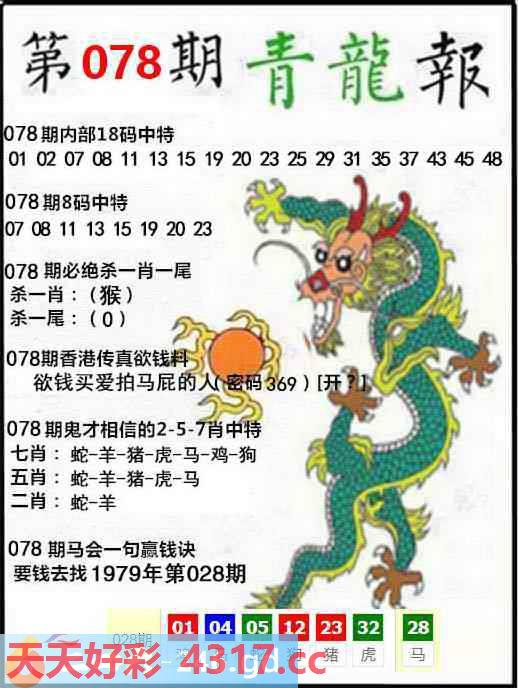 第078期 青龍報
078期内部18码中特
01 02 07 08 11 13 15 19 20 23 25 29 31 35 37 43 45 48
078期8码中特
07 08 11 13 15 19 20 23
078 期必绝杀一肖一尾
杀一肖：(猴)
杀一尾：(0)
078期香港传真欲钱料
欲钱买爱拍马屁的人(密码369)[开?]
078期鬼才相信的2-5-7肖中特
七肖：蛇-羊-猪-虎-马-鸡-狗
五肖：蛇-羊-猪-虎-马
二肖：蛇-羊
078 期马会一句赢钱诀
要钱去找1979年第028期
028期 01 04 05 12 23 32 28
狗 猪 虎 马
天天好彩 4317.cc